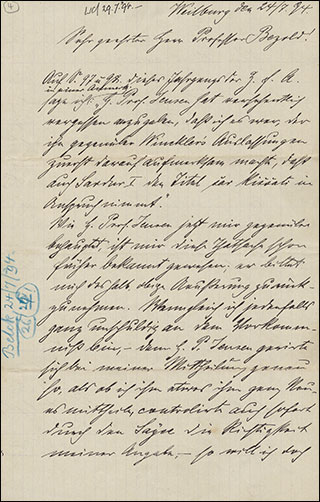 4
Ud 29.7.94.
Weilburg den 24/7 94
Sehr geehrter Herr Professor Bezold!
Auf S. 97 u 98 dieses Jahrgangs der Z. f. A.
in seiner Antwort
sage ich: "H. Prof. Jensen hat versehentlich
vergessen anzugeben, daß ich es war, der
ihn gegenüber Wincklers Auslassungen
zuerst darauf aufmerksam macht, daß
auch Sardur I den Titel šar kiššati in
Anspruch nimmt".
Wie H. Prof. Jensen jetzt mir gegenüber
behauptet, ist mir diese Thatsache schon
früher bekannt gewesen; er bittet
mich deshalb obige Aeußerung zurück-
zunehmen. Wenngleich ich jedenfalls
ganz unschuldig an dem Vorkomm-
niß bin, – denn H. P. Jensen gerirte
sich bei meiner Mittheilung genau
so, als ob ich ihm etwas ihm ganz Neu-
es mittheilte, controlirte auch sofort
durch den Sayce die Richtigkeit
meiner Angabe, – so will ich doch
Belck 24/7 94